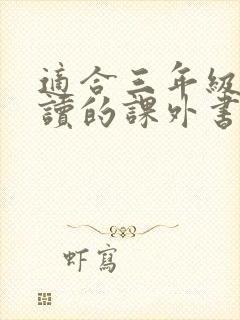 適合三年級
讀的課外書
虾寫